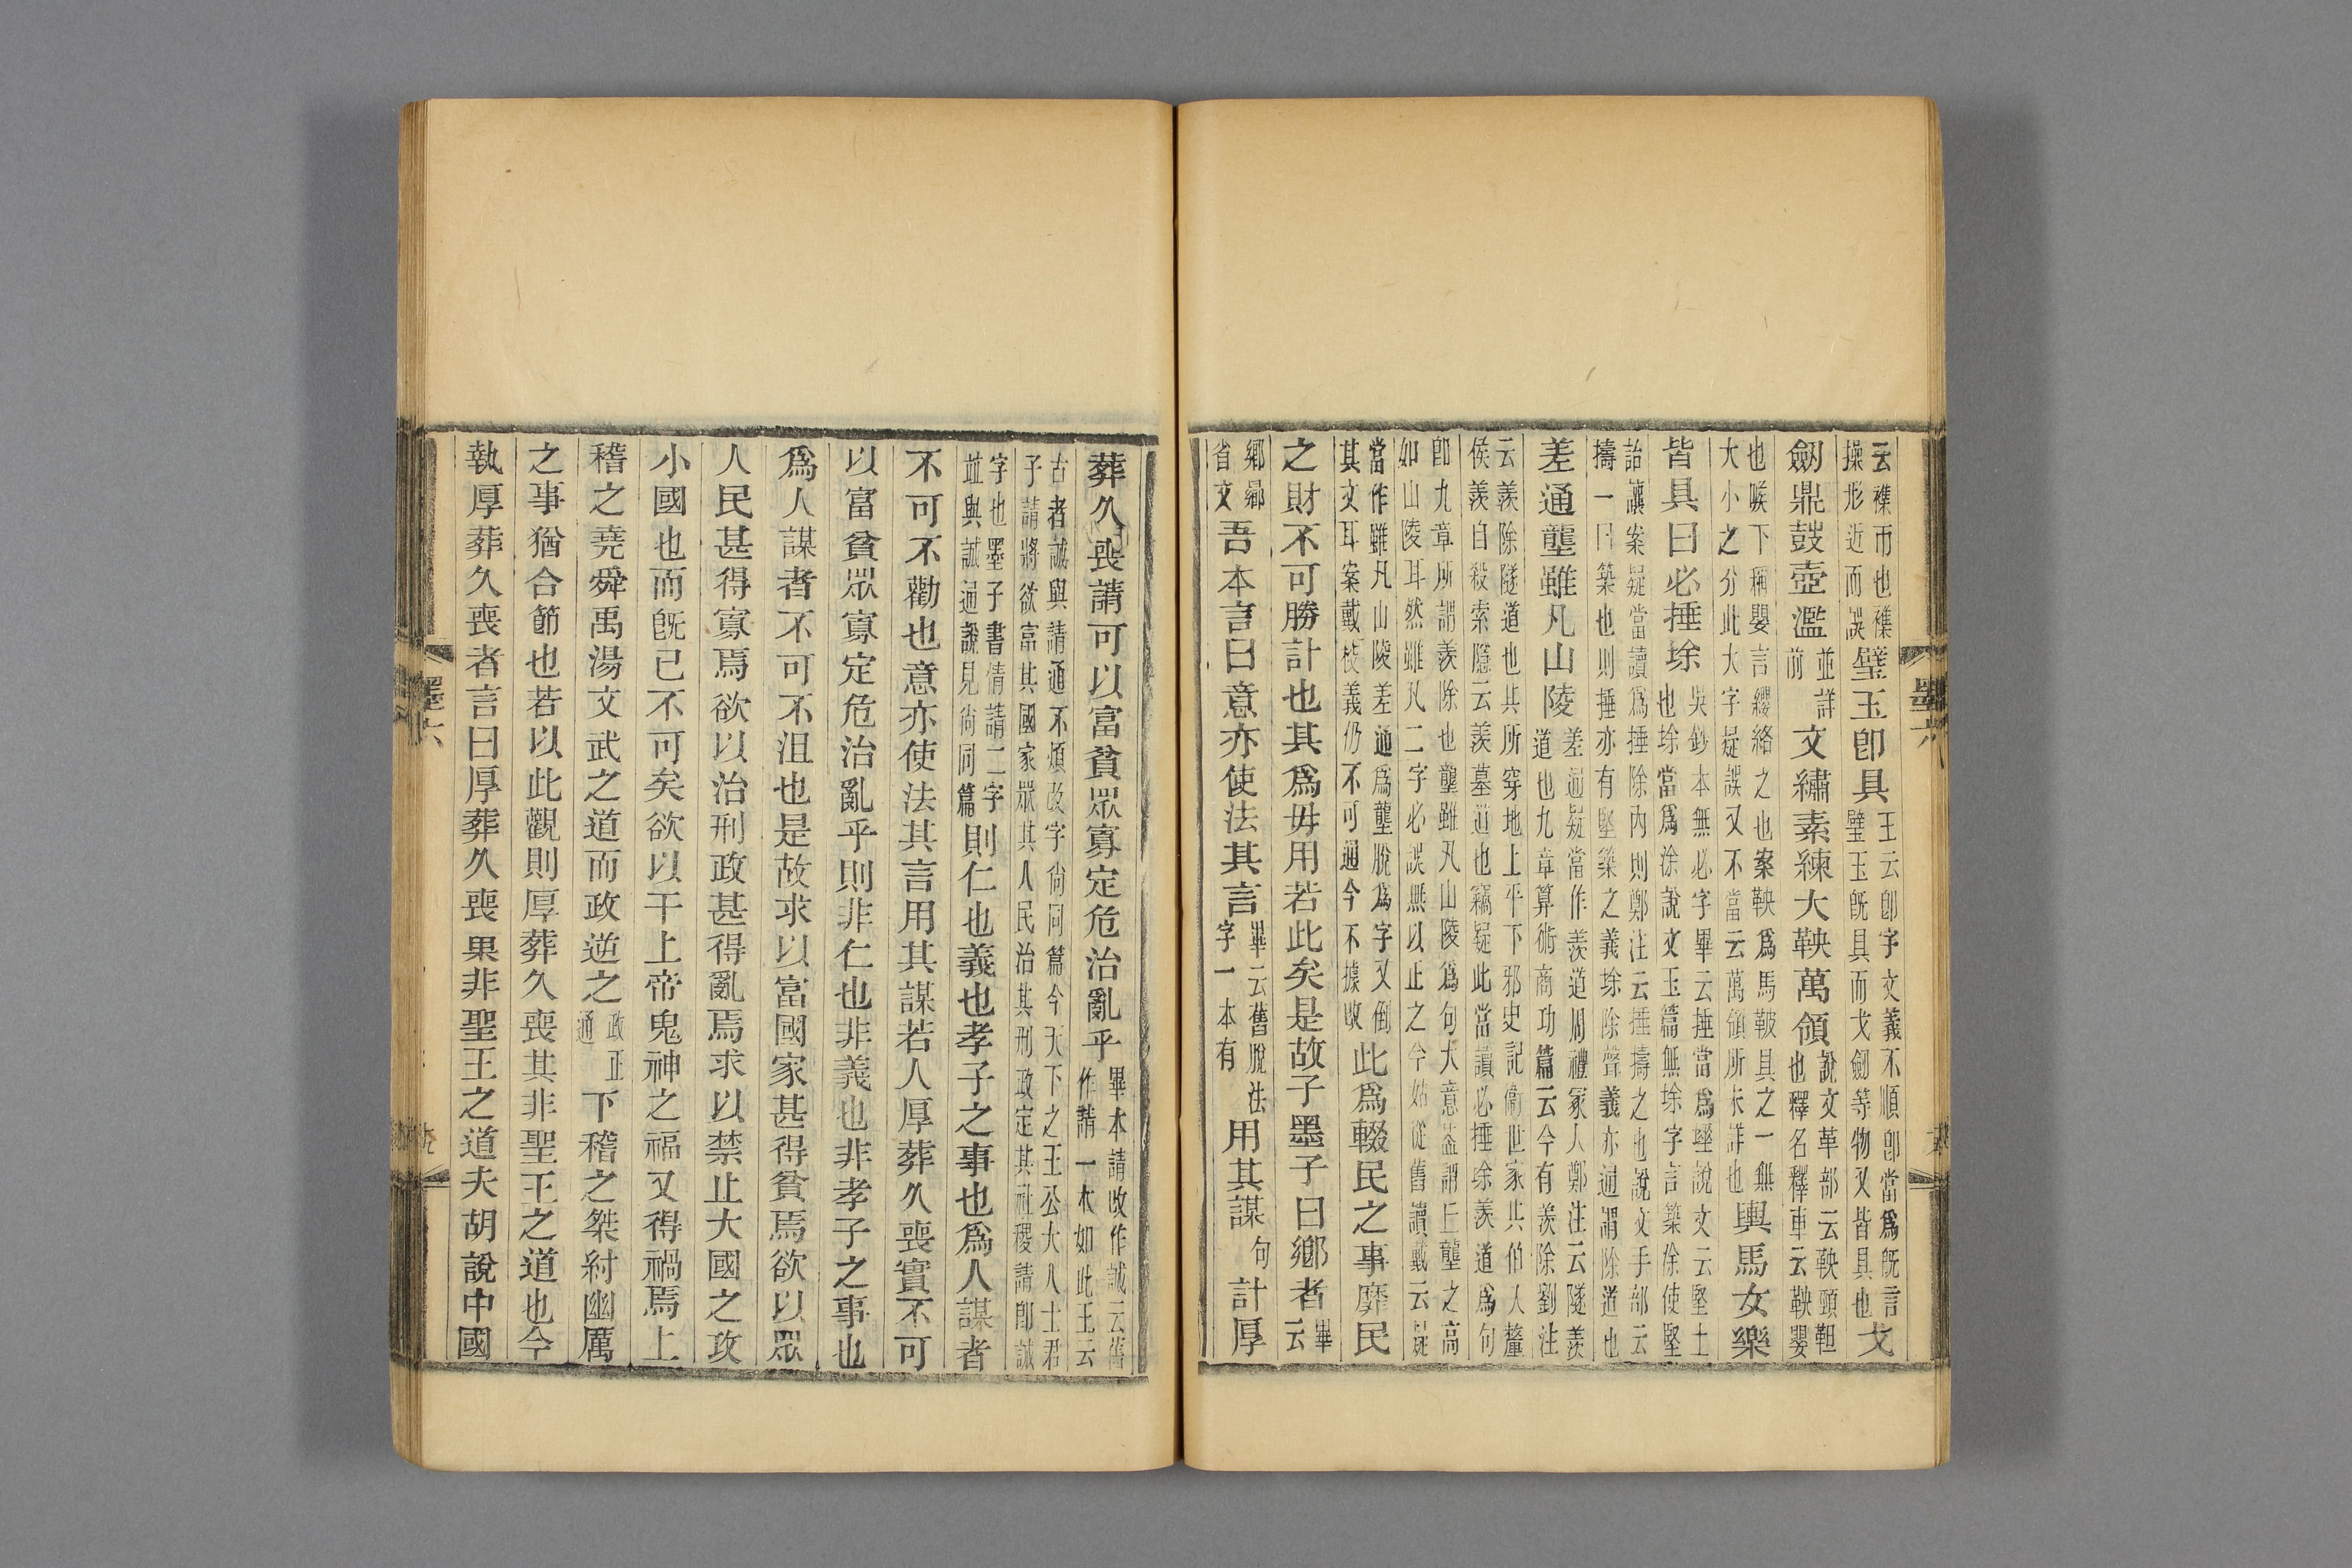 云襍帀也襍操形近而誤璧玉卽具王云卽字文義不順卽當爲旣言璧玉旣具而戈劒等物又皆具也戈
劒鼎鼓壺濫並詳前文繡素練大鞅萬領說文革部云鞅頸靼也釋名釋車云鞅嬰
也喉下稱嬰言纓絡之也案鞅爲馬鞁具之一無大小之分此大字疑誤又不當云萬領所未詳也輿馬女樂
皆具曰必捶𡌘吳鈔本無必字畢云捶當爲埵說文云堅土也𡌘當爲涂說文玉篇無𡌘字言築涂使堅
詒讓案疑當讀爲捶除內則鄭注云捶擣之也說文手部云擣一曰築也則捶亦有堅築之義𡌘除聲義亦通謂除道也
差通壟雖凡山陵差通疑當作羨道周禮冢人鄭注云隧羨道也九章算術商功篇云今有羨除劉注
云羨除隧道也其所穿地上平下邪史記衞世家共伯入釐侯羨自殺索隱云羨墓道也竊疑此當讀必捶𡌘羨道爲句
卽九章所謂羨除也壟雖凡山陵爲句大意葢謂丘壟之高如山陵耳然雖凡二字必誤無以正之今姑從舊讀戴云疑
當作雖凡山陵差通爲壟脫爲字又倒其文耳案戴校義仍不可通今不據改此爲輟民之事靡民
之財不可勝計也其爲毋用若此矣是故子墨子曰鄉者畢云
鄉曏省文吾本言曰意亦使法其言畢云舊脫法字一本有用其謀句計厚
葬久喪請可以富貧眾寡定危治亂乎畢本請改作誠云舊作請一本如此王云
古者誠與請通不煩改字尙同篇今天下之王公大人士君子請將欲富其國家眾其人民治其刑政定其社稷請卽誠
字也墨子書情請二字並與誠通說見尙同篇則仁也義也孝子之事也爲人謀者
不可不勸也意亦使法其言用其謀若人厚葬久喪實不可
以富貧眾寡定危治亂乎則非仁也非義也非孝子之事也
爲人謀者不可不沮也是故求以富國家甚得貧焉欲以眾
人民甚得寡焉欲以治刑政甚得亂焉求以禁止大國之攻
小國也而旣已不可矣欲以干上帝鬼神之福又得禍焉上
稽之堯舜禹湯文武之道而政逆之政正通下稽之桀紂幽厲
之事猶合節也若以此觀則厚葬久喪其非聖王之道也今
執厚葬久喪者言曰厚葬久喪果非聖王之道夫胡說中國
墨六